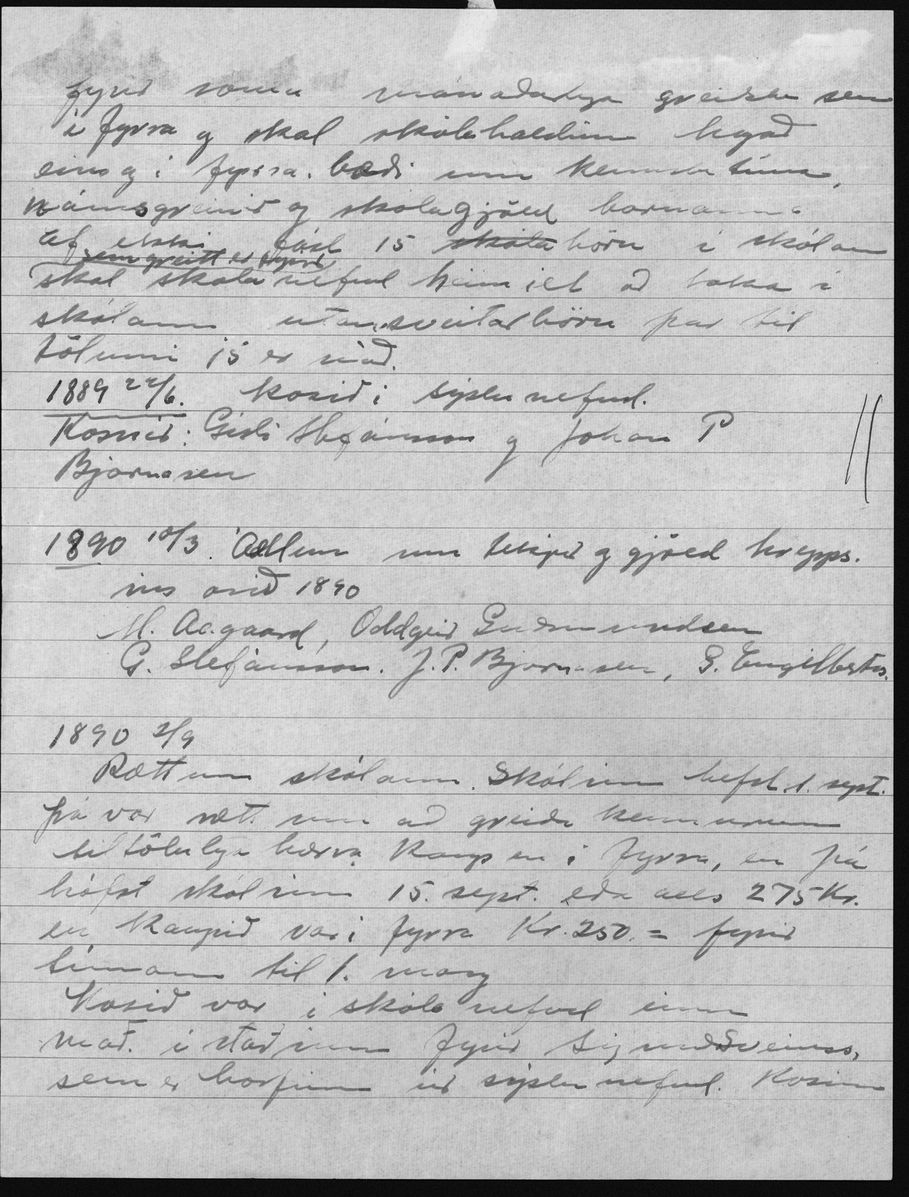 fyrir sömu mánaðarlega greiðslu sem
í fyrra og skal skólahaldinu hagað
eins og í fyrra. bæði um kennslutíma,
námsgreinir og skólagjöld barnanna
ef ekki fást 15 skóla börn í skólann
sem greitt er fyrir
skal skólanefnd heimilt að taka í
skólann utansveitarbörn þar til
tölunni 15 er náð.
1889 22/6. Kosið í sýslunefnd.
Kosnir: Gísli Stefánsson og Johan P
Bjarnasen
1890 10/3. Áætlun um tekjur og gjöld hrepps-
ins árið 1890
M. Aagaard, Oddgeir Guðmundsen
G. Stefánsson. J. P. Bjarnasen, G. Engilbertss.
1890 2/9
Rætt um skólann. Skólinn hefst 1. sept.
þá var rætt um að greiða kennurum
tiltölulega hærra kaup en í fyrra, en þá
hófst skólinn 15. sept. eða alls 275 Kr.
en kaupið var í fyrra Kr. 250. = fyrir
tímann til 1. marz
Kosið var í skólanefnd einn
mað. í staðinn fyrir Sigurð Sveinss.
sem er horfinn úr sýslunefnd. Kosinn